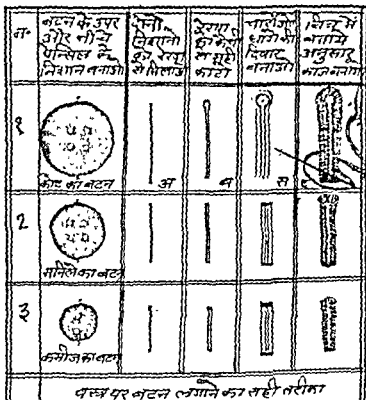 न॰
बटन के उपर
और नीचे
पेन्सिल के
निशान बनाओ
दोनो
निशानो
को रेखा
से मिलाओ
रेखा
को
से
काटो
चारो ओर
धागे की
दिवार
बनाओ
चित्र में
बताये
अनुसार
काज बनाओ
१
कोट का बटन
अ
ब
स
2
का बटन
३
कमीज का बटन
वस्त्र पर बटन लगाने का सही तरीका